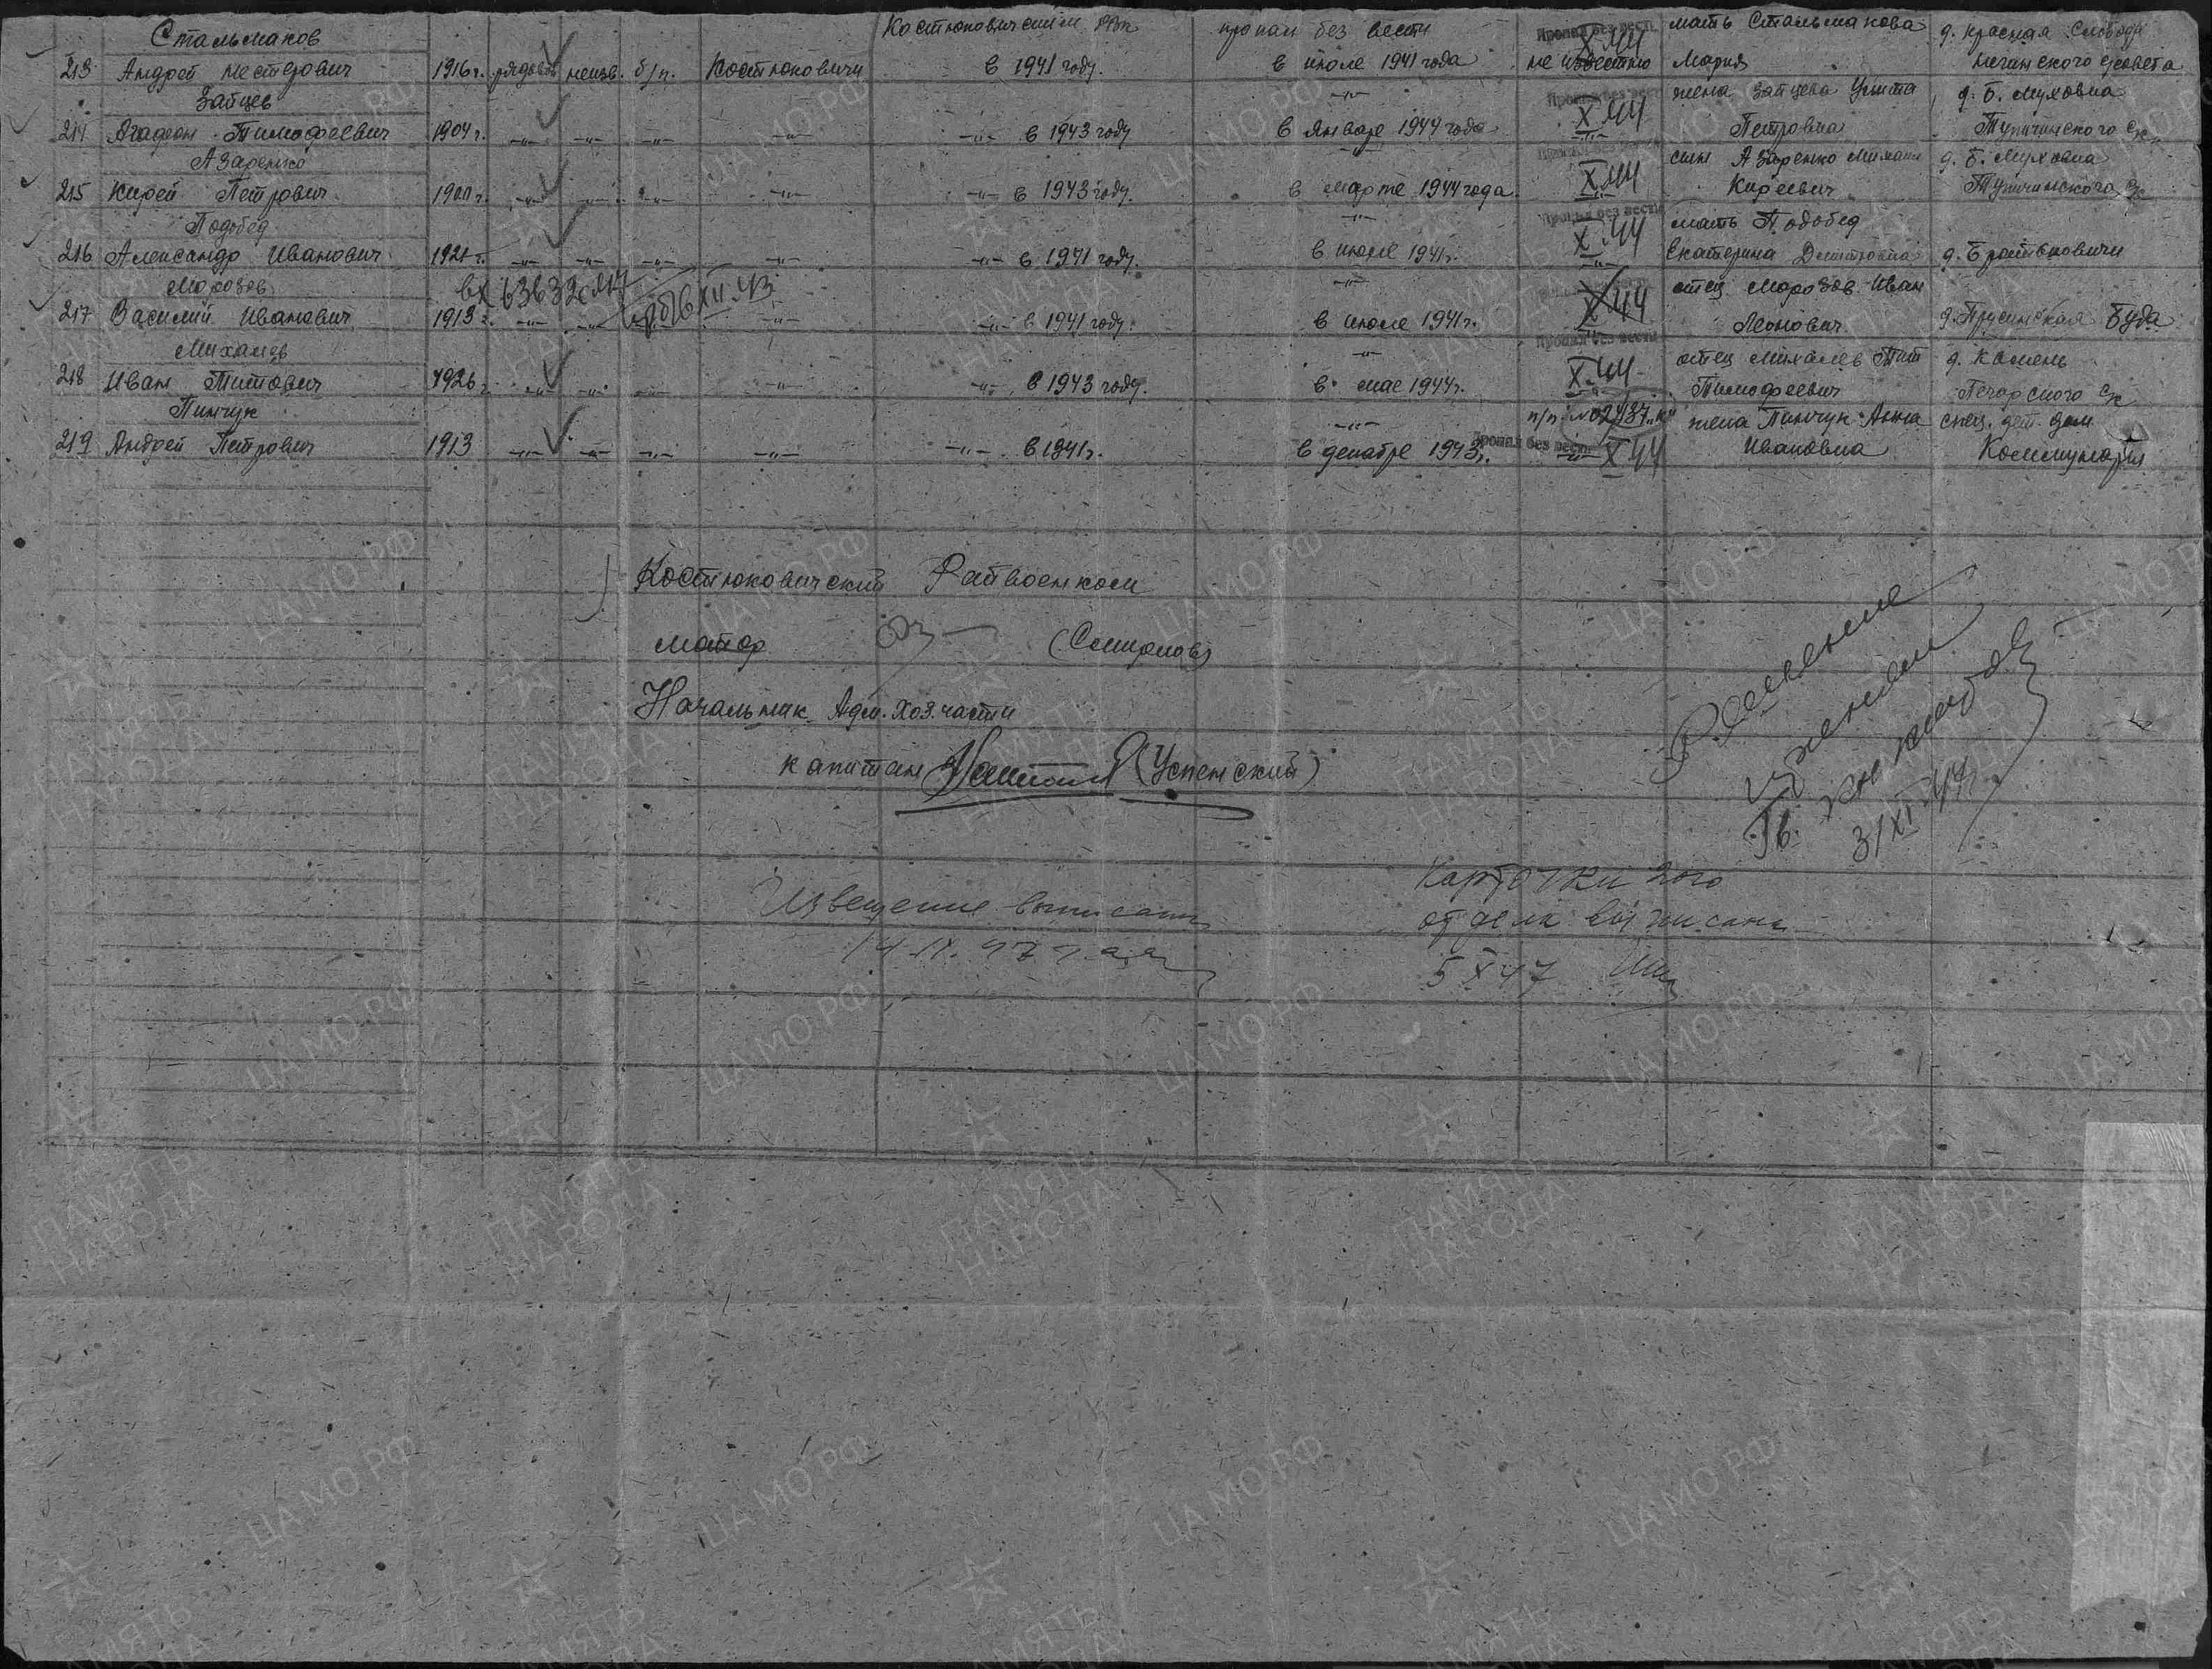 Стальмаков Костюковичским РВк пропал без вести Пропал без вест. X.44 мать Стальмакова д. Красная Слобода
213 Андрей Нестерович 1916 г. рядовой неизв. б/п. Костюковичи в 1941 году. в июле 1941 года не известно Мария сельсовета
Зайцев -"- Пропал без вест X.44 жена Зайцева Улита д. Б. Муховка
214 Тимофеевич 1904 г. -"- -"- -"- -"- -"- в 1943 году в январе 1944 года -"- Петровна Тупичинского с/с
Азаренко -"- Пропал без вести X.44 сын Азаренко Михаил д. Б. Муховка
215 Кирей Петрович 1900 г. -"- -"- -"- -"- -"- в 1943 году. в марте 1944 года. -"- Киреевич Тупичинского с/с
Подобед -"- Пропал без вести X.44 мать Подобед
216 Александр Иванович 1921 г. -"- -"- -"- -"- -"- в 1941 году. в июле 1941 г. -"- Екатерина Дмитровна д. Братьковичи
Морозов вх 63632 -"- X 44 отец Морозов Иван
217 Василий Иванович 1913 г. -"- -"- XII.43 -"- -"- в 1941 году. в июле 1941 г. Леонович д. Прусинская Буда
Михалев -"- Пропал без вести X.44 отец Михалев Тит д. Камень
218 Иван Титович 1926 г. -"- -"- -"- -"- -"- в 1943 году. в мае 1944 г. Тимофеевич Печарского с/с
Пинчук -"- п/п № 02437 "к" жена Пинчук Анна спец. дет. дом
219 Андрей Петрович 1913 -"- -"- -"- -"- -"- в 1941 г. в декабре 1943 г. Пропал без вести -"- X 44 Ивановна Коммунары
Костюковичский Райвоенком
майор (Смирнов)
Начальник Адм. Хоз. части
капитан (Успенский)
Гв.
3/XI
Извещение выписаны
14.IX.47 г.
Карточки 2ого
отдела выписаны
5 X 47